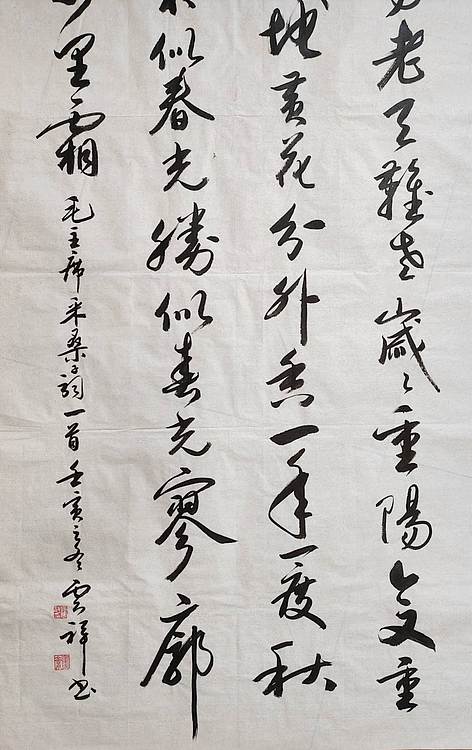 老天難老歲々重陽今又重
地黄花分外香一年一度秋
似春光勝似春光寥廓
里霜 毛主席采桑子詞一首壬寅之冬雲祥书